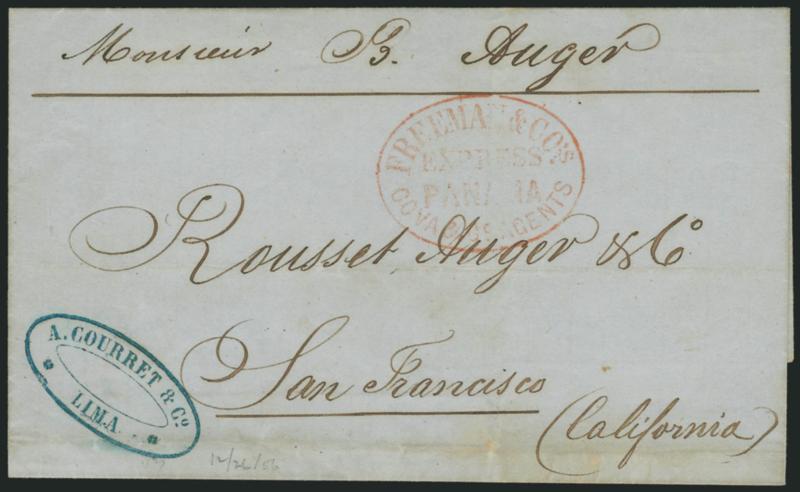 Monsieur B. Auger
FREEMAN & CO'S
EXPRESS
PANAMA
AGENTS
Rousset, Auger & Cº
San Francisco
(California)
A. COURRET & Cº
LIMA.
12/26/56